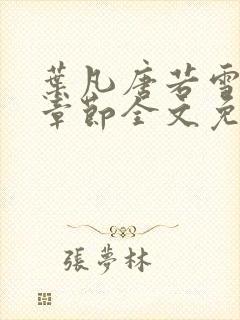 葉凡唐若雪
章節全文免
張夢林